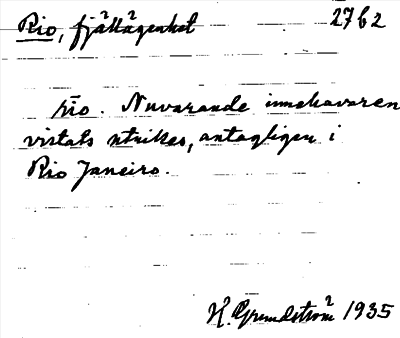 Rio, fjällägenhet 2762
rīo. Nuvarande innehavaren
vistats utrikes, antagligen i
Rio Janeiro.
H. Grundström 1935